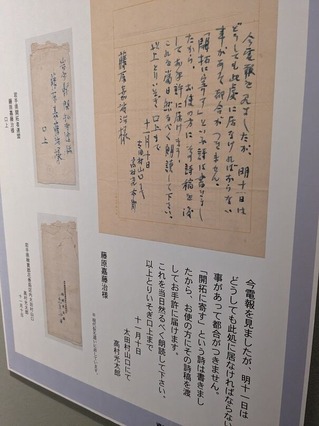 今電報を見ましたが、明十一日は
どうしても此処に居なければならない
事があって都合がつきません。
「開拓に寄す」という詩は書きまし
たから、お使の方にその詩稿を渡
してお手許に届けます。
これを当日然るべく朗読して下さい。
以上とりいそぎ口上まで
十一月十日
太田村山口にて
高村光太郎
藤原嘉藤治様
今電報を見ましたが、明十一日は
どうしても此処に居なければならない
事があって都合がつきません。
「開拓に寄す」という詩は書きまし
たから、お使の方にその詩稿を渡
してお手許に届けます。
これを当日然るべく朗読して下さい。
以上とりいそぎ口上まで
十一月十日
太田村山口にて
高村光太郎
藤原嘉藤治様
岩手県開拓者連盟
藤原嘉藤治様
口上